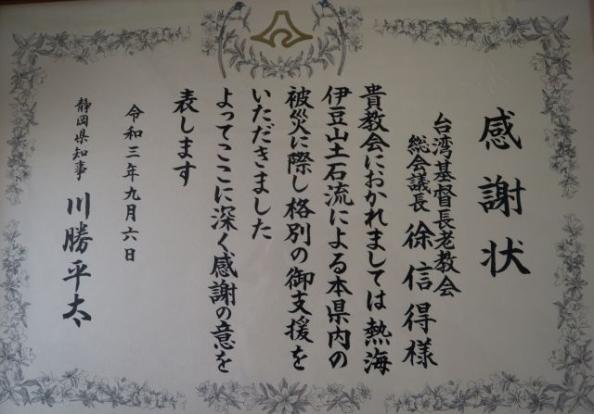 感謝状
台湾基督長老教会
総会議長 徐信得様
貴教会におかれましては熱海
伊豆山土石流による本県内の
被災に際し格別の御支援を
いただきました
よってここに深く感謝の意を
表します
令和三年九月六日
静岡県知事 川勝平太